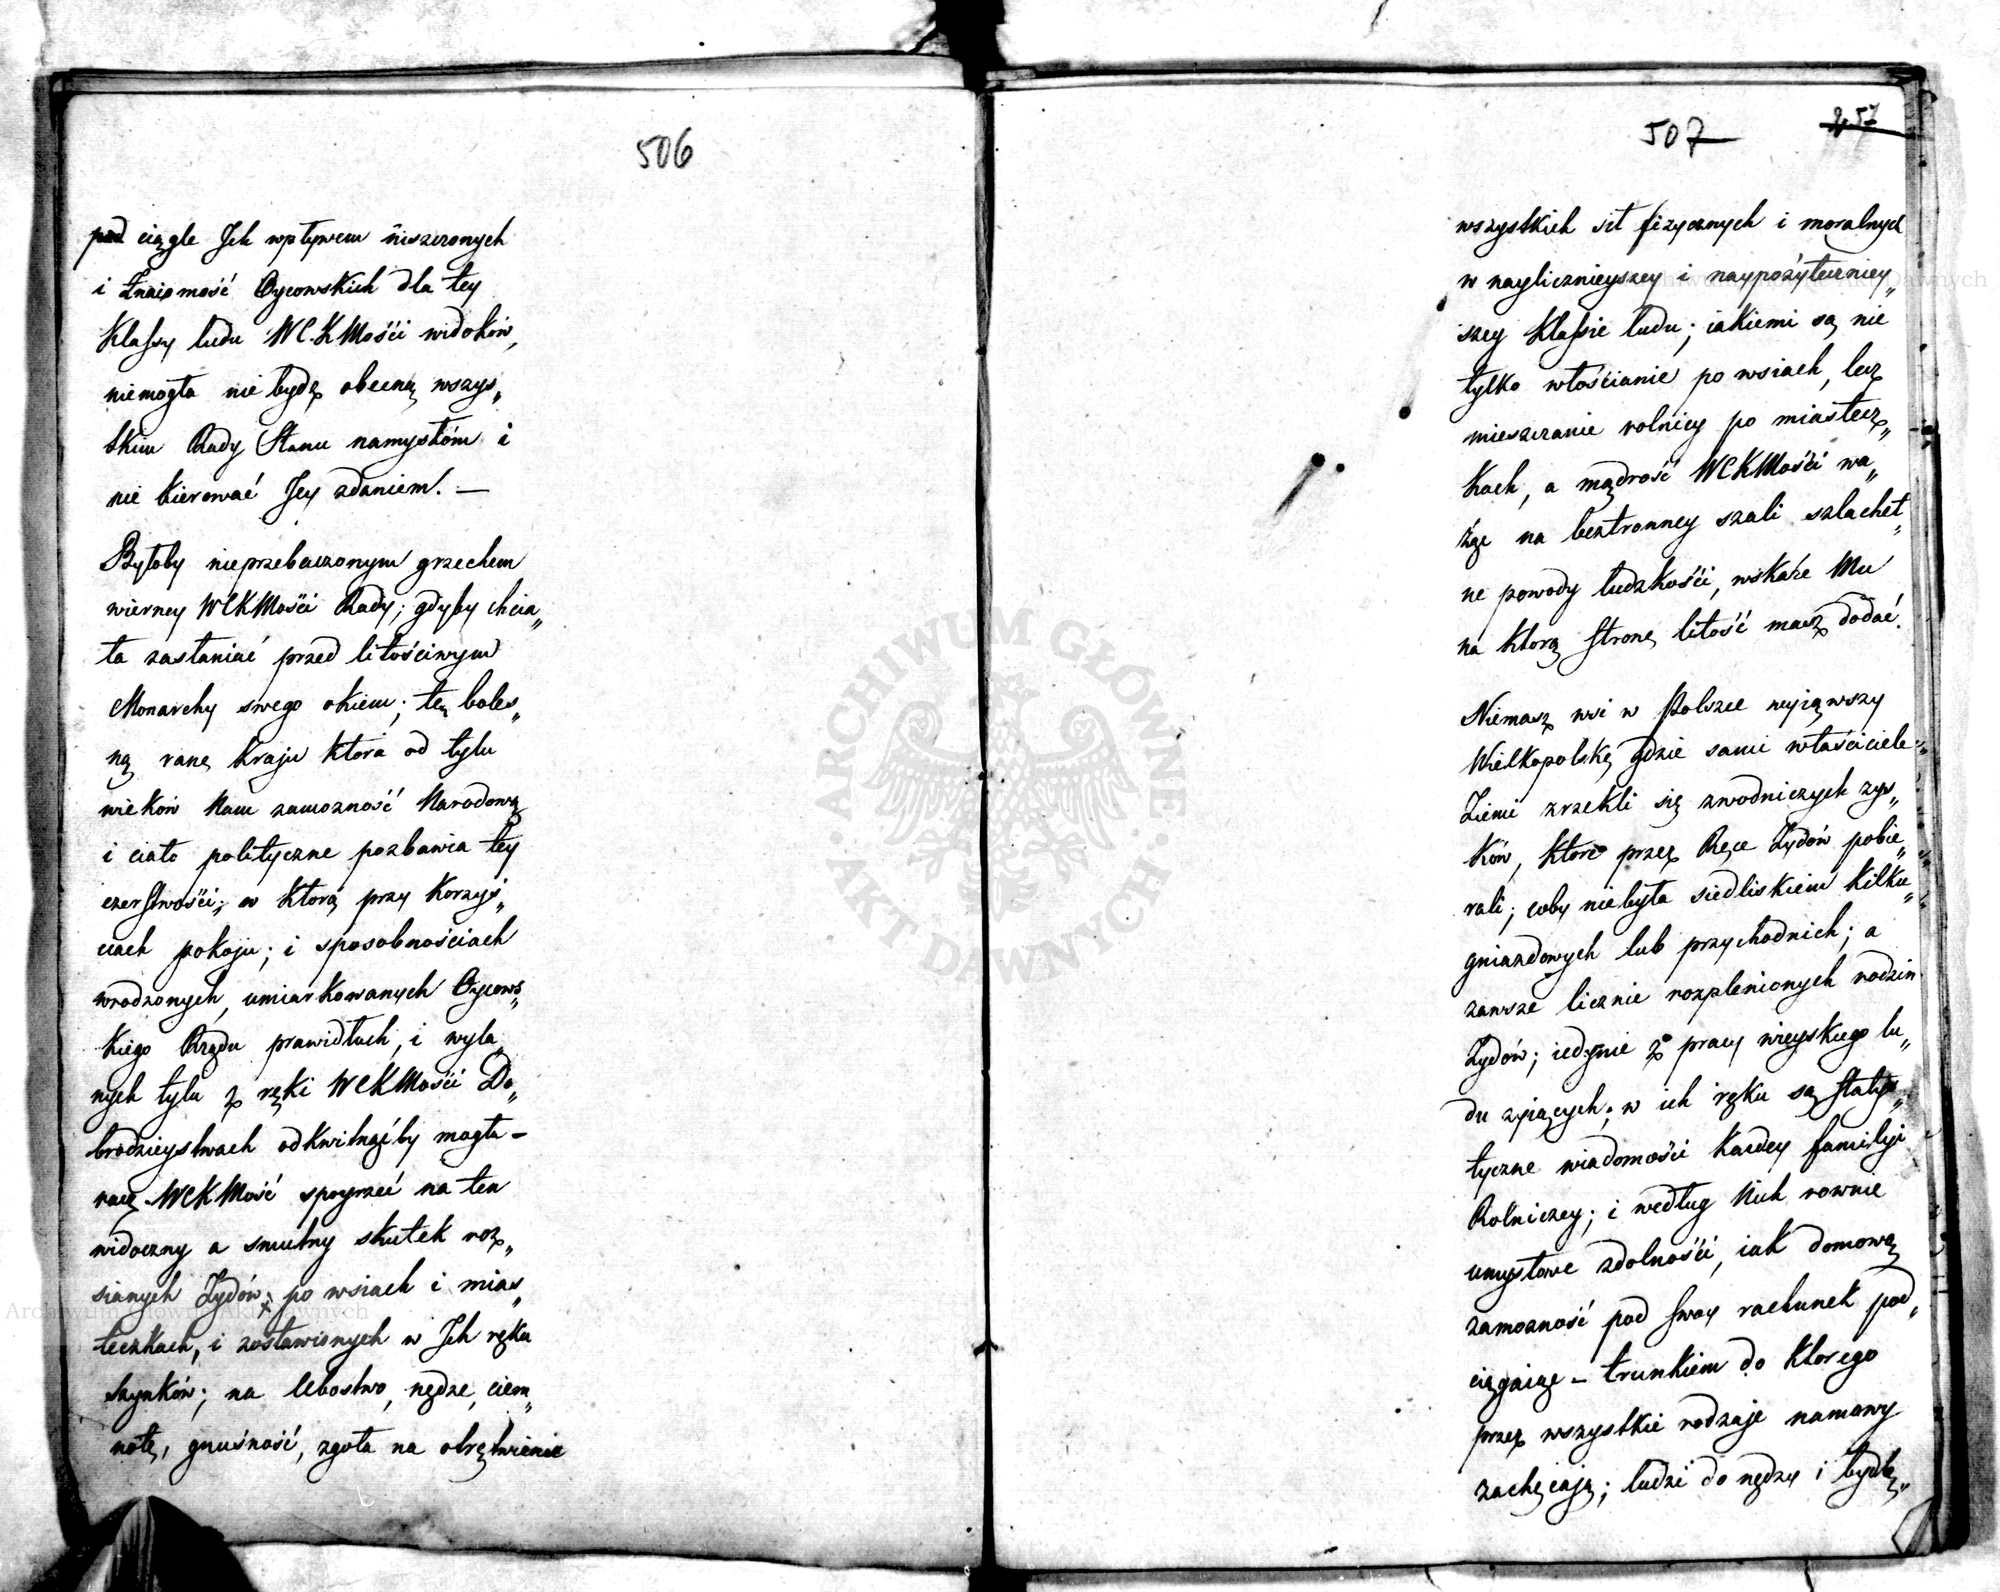 506
pod ciągle Jch wpływem niszczonych
i Znaiomość Oycowskich dla tey
Klassy ludu W.C.K.Mości widoków,
niemogła nie bydź obecną wszys„
tkim Rady Stanu namysłóm i
nie kierować Jey zdaniem. —
Byłoby nieprzebaczonym grzechem
wierney WCKMości Rady; gdyby chcia„
ła zasłaniać przed litościwym
Monarchy swego okiem; tę boles„
ną ranę kraju która od tylu
wieków Nam zamożność Narodową
i ciało polityczne pozbawia tey
czerstwości; w którą przy korzyś„
ciach pokoju; i sposobnościach
wrodzonych, umiarkowanych Oycows„
kiego Rządu prawidłach, i wyla„
nych tylu z ręki WCKMości Do„
brodzieystwach odkwitnąćby mogła —
racz WCKMość spoyrzeć na ten
widoczny a smutny skutek roz„
sianych Żydów; po wsiach i mias„
teczkach, i zostawionych w Jch ręku
Szynków; na Ubostwo, nędzę, ciem„
notę, gnuśność, zgoła na otrętwienie
507
257
wszystkich sił fizycznych i moralnych
w nayliczneyszey i naypożyteczniey„
szey Klassie ludu; iakiemi są nie
tylko włościanie po wsiach, lecz
mieszczanie rolnicy po miastecz„
kach, a mądrość WCKMości wa„
żąc na beztronney szali szlachet„
ne powody ludzkości, wskaże Mu
na którą stronę litość masz dodać.
Niemasz wsi w Polszcze wyiąwszy
Wielkopolskę gdzie sami właściciele
Ziemi zrzekli się zwodniczych zys„
ków, które przez Ręce Żydów pobie„
rali; coby niebyła siedliskiem kilku„
gniazdowych lub przychodnich; a
zawsze licznie rozplenionych rodzin
Żydów; iedynie z pracy wieyskiego lu„
du żyiących; w ich ręku są statys„
tyczne wiadomości każdey familyi
Rolniczey; i według Nich rownie
umysłowe zdolności, iak domową
zamożność pod swoy rachunek pod„
ciągaiąc — trunkiem do którego
przez wszystkie rodzaje namowy
zachęcają; ludzi do nędzy i bydlę„
ARCHIWUM GŁÓWNE · AKT DAWNYCH ·
Archiwum Główne Akt Dawnych
Archiwum Główne Akt Dawnych